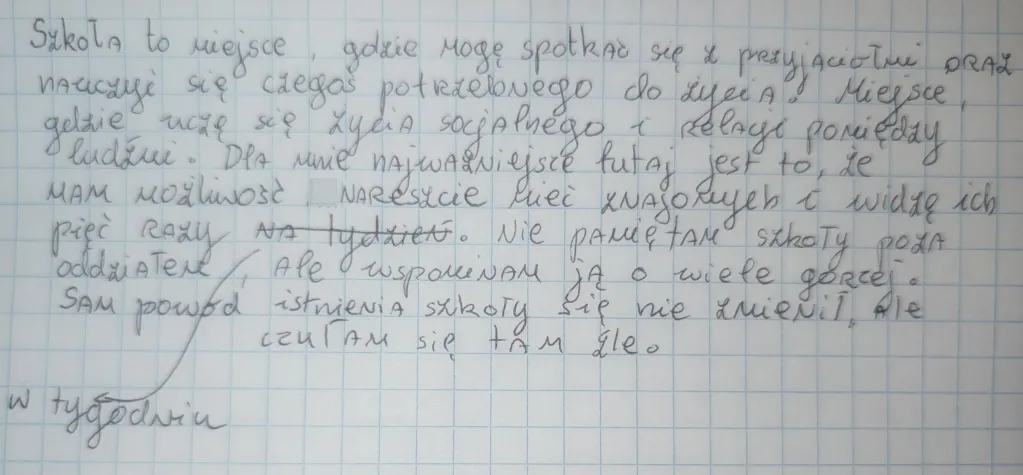 Szkoła to miejsce, gdzie mogę spotkać się z przyjaciółmi oraz
nauczyć się czegoś potrzebnego do życia. Miejsce,
gdzie uczę się życia socjalnego i relacji pomiędzy
ludźmi. Dla mnie najważniejsce tutaj jest to, że
mam możliwość nareszcie mieć znajomych i widzę ich
pięć razy na tydzień. Nie pamiętam szkoły poza
oddziałem, ale wspominam ją o wiele gorzej.
Sam powód istnienia szkoły się nie zmienił, ale
czułam się tam źle.
w tygodniu